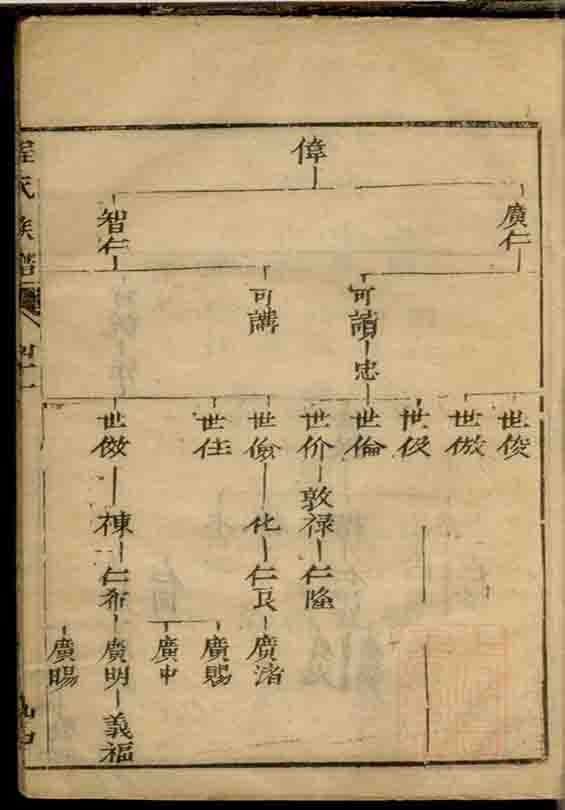 偉
廣仁
智仁
可讀 忠
可講
世俊
世倣
世伇
世倫
世价 敦禄 仁隆
世儉 化 仁良 廣渚
廣賜
廣中
世住
世儆 棟 仁希 廣明 義福
廣暘
程氏族譜